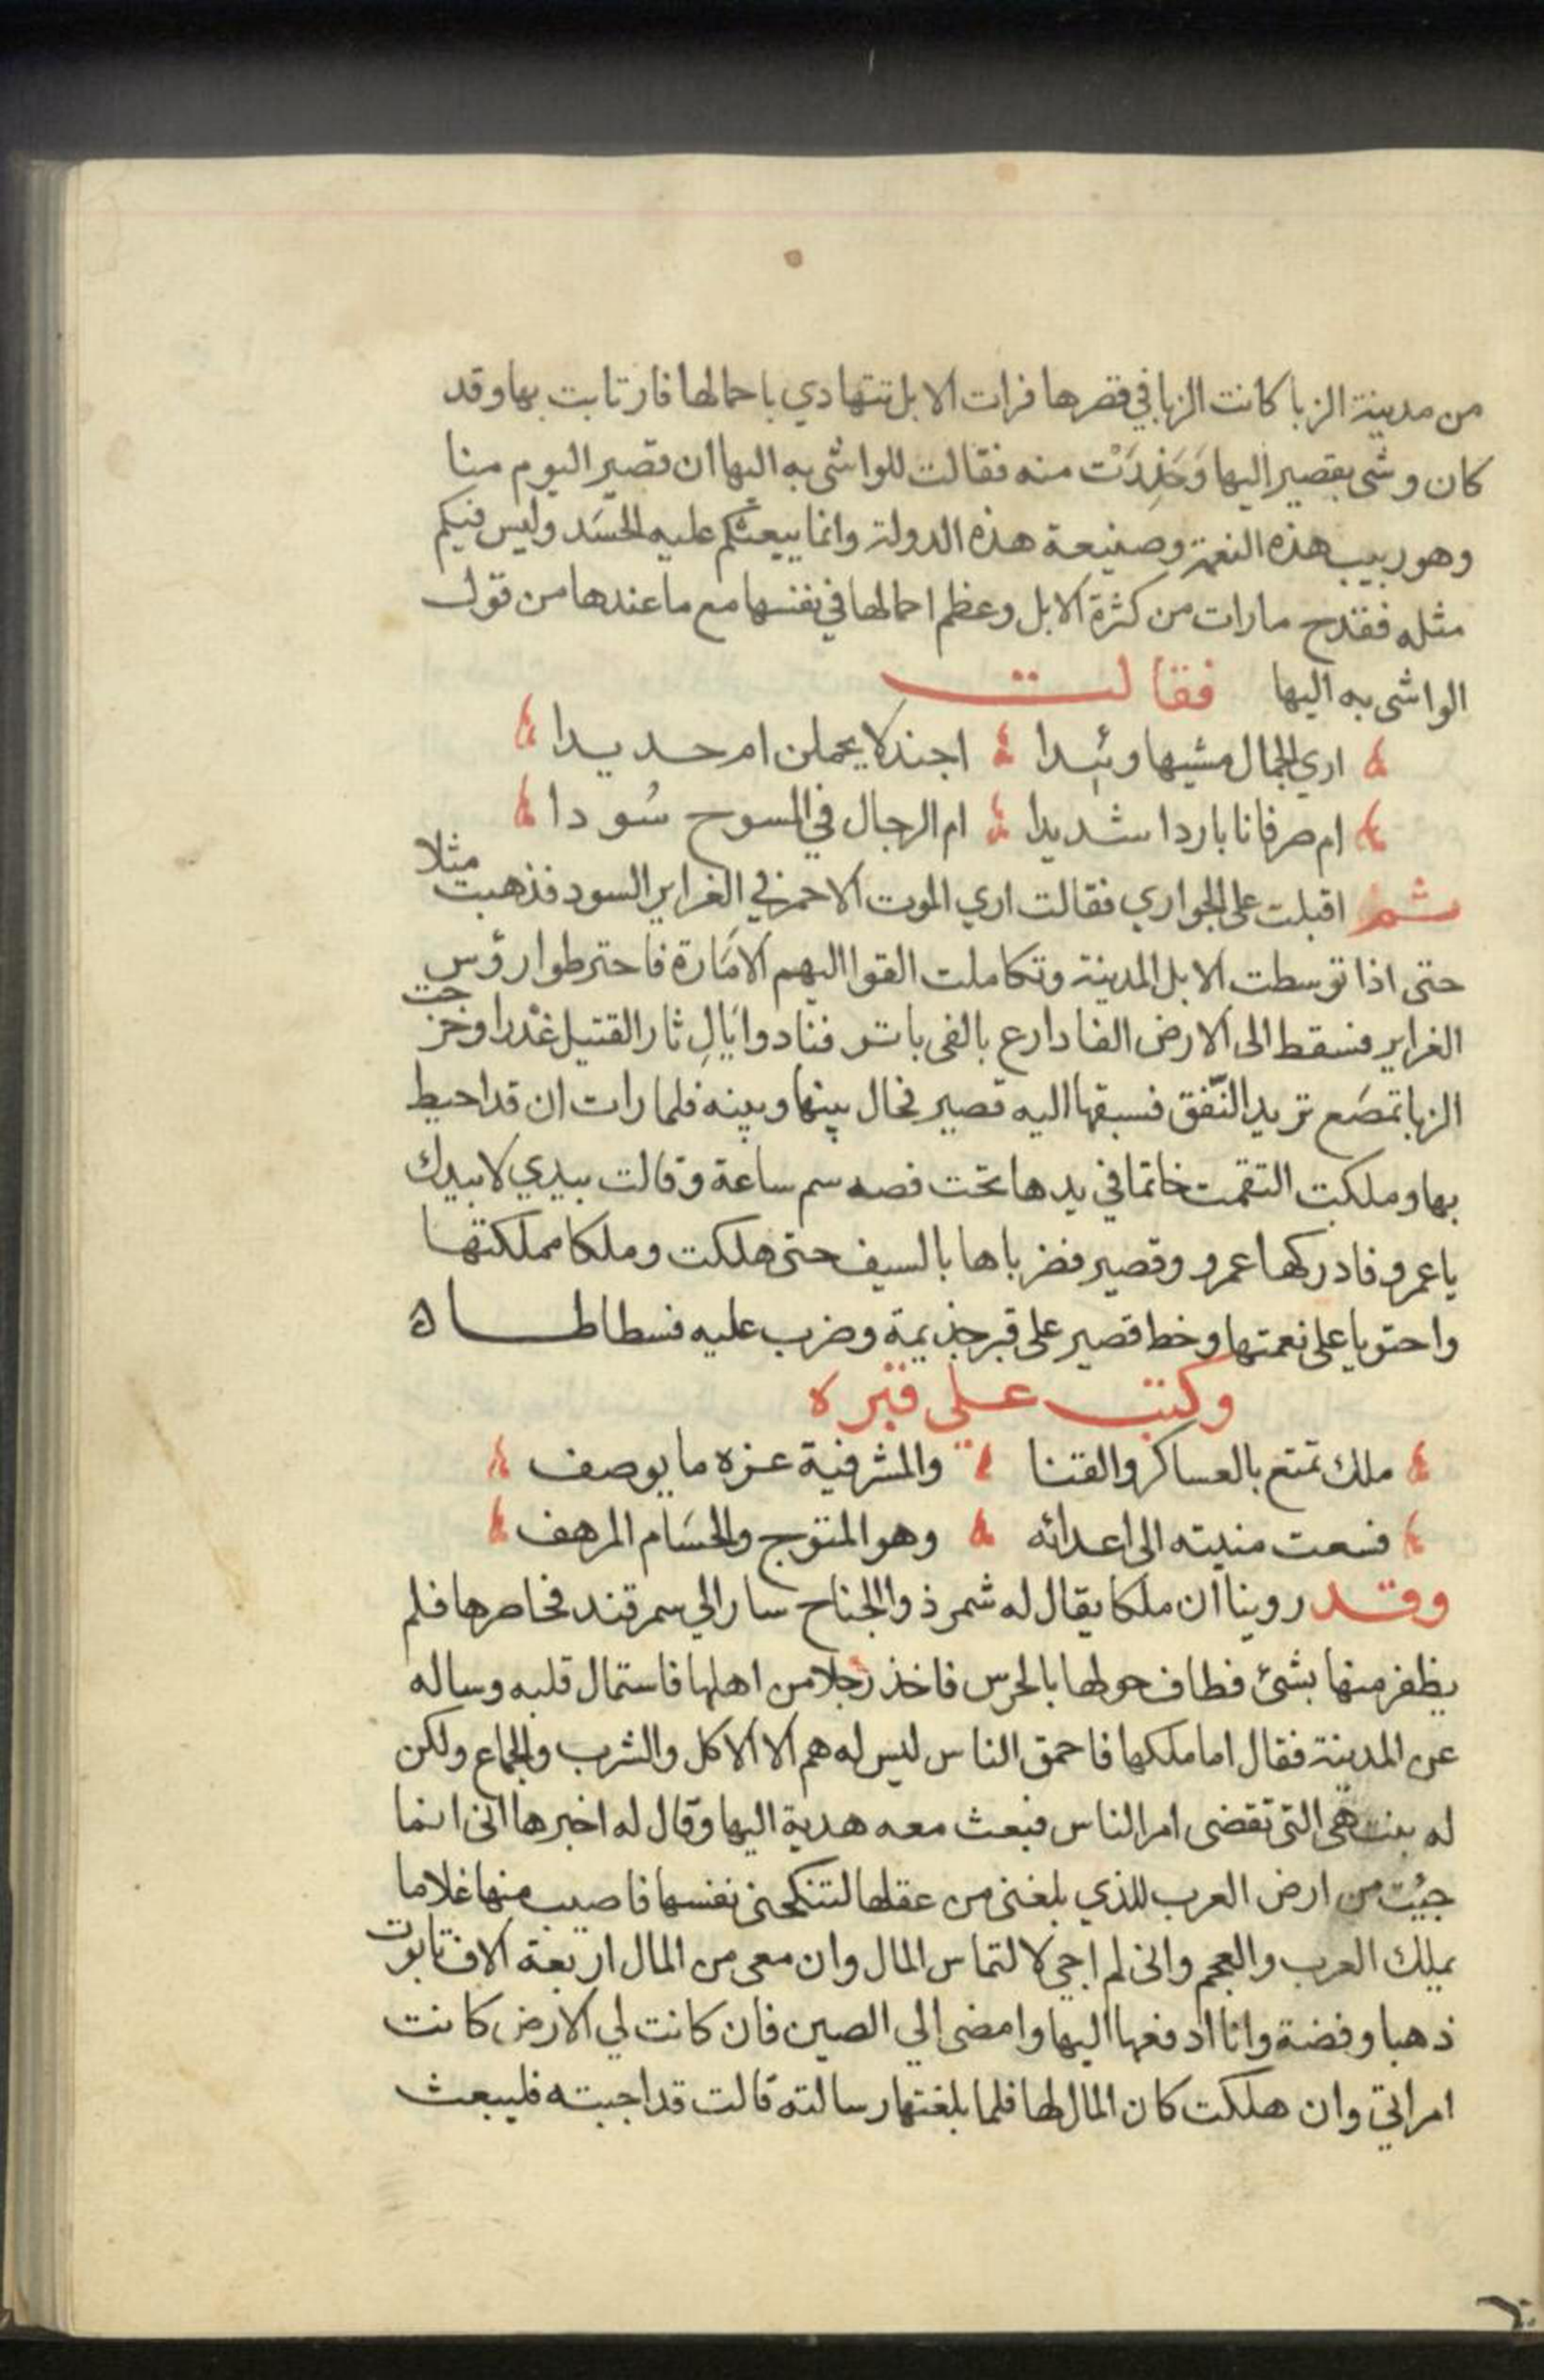 من مدينة الزبا كانت الزبا في قصرها فرات الابل تتهادي باحمالها فارتابت بها وقد
كان وشى بقصير اليها وَحَذِرَتْ منه فقالت للواشى به اليها ان قصير اليوم منا
وهو ربيب هذه النعمة وصنيعة هذه الدولة وانما يبعثكم عليه الحسَد وليس فيكم
مثله فقدح ما رات من كثرة الابل وعظم احمالها في نفسها مع ما عندها من قول
الواشى به اليها فقالت
اري الجمال مشيها وئيدا اجندلا يحملن ام حديدا
ام صرفانا باردا شديدا ام الرجال في المسوح سُودا
ثم اقبلت على الجواري فقالت اري الموت الاحمر في الغراير السود فذهبت مثلا
حتى اذا توسطت الابل المدينة وتكاملت القوا اليهم الامَارة فاخترطوا رؤس
الغراير فسقط الى الارض الفا دارع بالفى باتر فنادوا يَالِ ثار القتيل غدْرا وخرجت
الزبا تمصَع تريد النّفق فسبقها اليه قصير فحال بينها وبينه فلما رات ان قد احيط
بها وملكت التقمت خاتما في يدها تحت فصه سم ساعة وقالت بيدي لا بيدك
يا عمرو فادركها عمرو وقصير فضرباها بالسيف حتى هلكت وملكا مملكتها
واحتويا على نعمتها وخط قصير على قبر جذيمة وضرب عليه فسطاطا ه
وكتب علي قبره
ملك تمتع بالعساكر والقنا والمشرفية عزه ما يوصف
فسعت منيته الى اعدائه وهو المتوج والحسَام المرهف
وقد روينا ان ملكا يقال له شمر ذو الجناح سار الي سمرقند فحاصرها فلم
يظفر منها بشئ فطاف حولها بالحرس فاخذ رجلا من اهلها فاستمال قلبه وساله
عن المدينة فقال اما ملكها فاحمق الناس ليس له هم الا الاكل والشرب والجماع ولكن
له بنت هى التى تقضى امر الناس فبعث معه هدية اليها وقال له اخبرها انى انما
جيُت من ارض العرب للذي بلغنى من عقلها لتنكحنى نفسها فاصيب منها غلاما
يملك العرب والعجم وانى لم اجي لالتماس المال وان معى من المال اربعة الاف تابوت
ذهبا وفضة وانا ادفعها اليها وامضى الي الصين فان كانت لي الارض كانت
امراتي وان هلكت كان المال لها فلما بلغتها رسالته قالت قد اجبته فليبعث